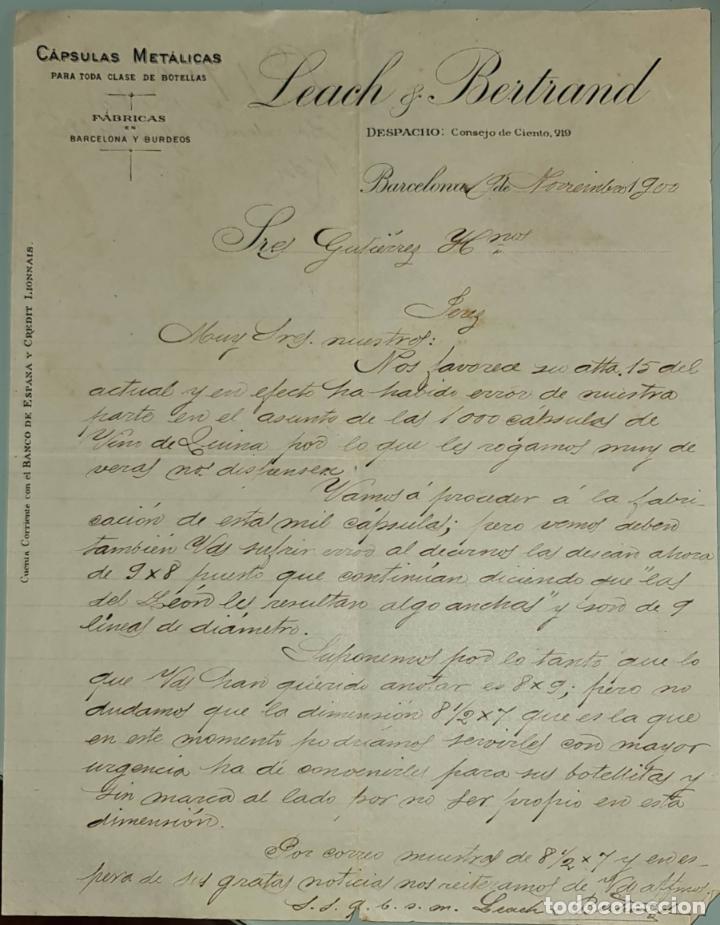 CÁPSULAS METÁLICAS
PARA TODA CLASE DE BOTELLAS
FÁBRICAS
EN
BARCELONA Y BURDEOS
Leach & Bertrand
DESPACHO: Consejo de Ciento, 219
Barcelona de Noviembre 1900
Sres Gutiérrez Hnos
Jerez
Muy Sres. nuestros:
Nos favorece su atta. 15 del
actual y en efecto ha habido error de nuestra
parte en el asunto de las 1000 cápsulas de
Vino de Quina por lo que les rogamos muy de
veras nos dispensen.
Vamos á proceder á la fabri-
cación de estas mil cápsulas; pero vemos deben
también Vds sufrir error al decirnos las desean ahora
de 9 x 8 puesto que continúan diciendo que "las
del León les resultan algo anchas" y son de 9
líneas de diámetro.
Suponemos por lo tanto que lo
que Vds han querido anotar es 8 x 9; pero no
dudamos que la dimensión 8 1/2 x 7 que es la que
en este momento podríamos servirles con mayor
urgencia ha de convenirles para sus botellitas y
sin marca al lado por no ser propio en esta
dimensión.
Por correo muestras de 8 1/2 x 7 y en es-
pera de sus gratas noticias nos reiteramos de Vds attmos.
s. s. q. b. s. m. Leach & Bertrand
Cuenta Corriente con el BANCO DE ESPAÑA Y CREDIT LIONNAIS.
todocoleccion.net